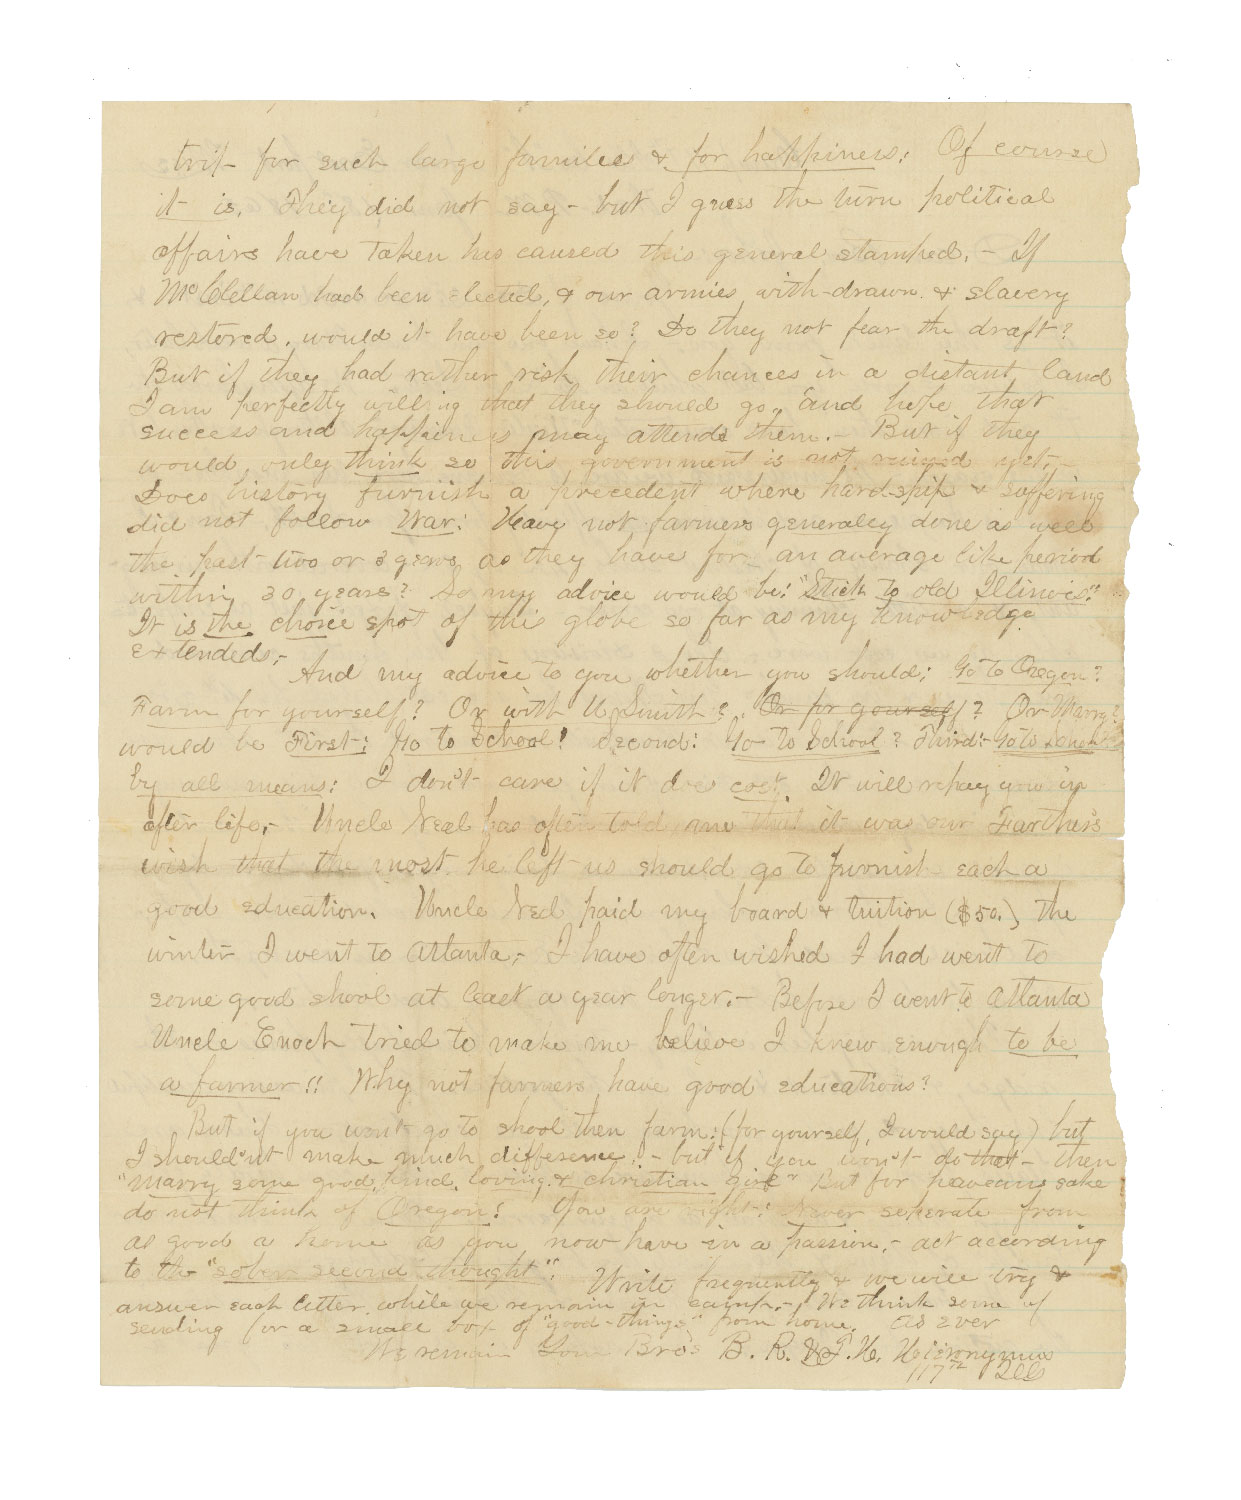 trip for such large families & for happiness: Of course
it is. They did not say - but I guess the turn political
affairs have taken has caused this general stamped. - If
McClellan had been elected, & our armies with-drawn & slavery
restored, would it have been so? Do they not fear the draft?
But if they had rather risk their chances in a distant land
I am perfectly willing that they should go, and hope that
success and happiness may attends them. - But if they
would only think so this government is not ruined yet, -
Does history furnish a precedent where hardship & suffering
did not follow War: Have not farmers generaley done as well
the past two or 3 years as they have for an average like period
within 30 years? So my advice would be: "Stick to old Illinois."
It is the choice spot of this globe so far as my knowledge
extendeds; -
And my advice to you whether you should: Go to Oregon?
Farm for yourself? Or with U Smith? Or for yourself? Or Marry?
would be First: Go to School! Second: Go to School? Third: - Go to School
by all means: I don't care if it doe cost. It will repay you in
after life, - Uncle Ned has often told me that it was our Farther's
wish that the most he left us should go to furnish each a
good education. Uncle Ned paid my board & tuition ($50.) the
winter I went to Atlanta, - I have often wished I had went to
some good shool at least a year longer. - Before I went to Atlanta
Uncle Enoch tried to make me believe I knew enough to be
a farmer!! Why not farmers have good educations?
But if you wont go to shool then farm: (for yourself, I would say) but
I should'nt make much difference: - but if you won't do that - then
"Marry some good, kind, loving, & christian girl" But for heavens sake
do not think of Oregon! You are right: Never seperate from
as good a home as you now have in a passion, - act according
to the "sober second thought". Write frequently & we will try &
answer each letter while we remain in camp, - We think some of
sending for a small box of "good-things" from home. As ever
We remain Your Bro's B. R. & J. H. Hieronymus
117th Ills